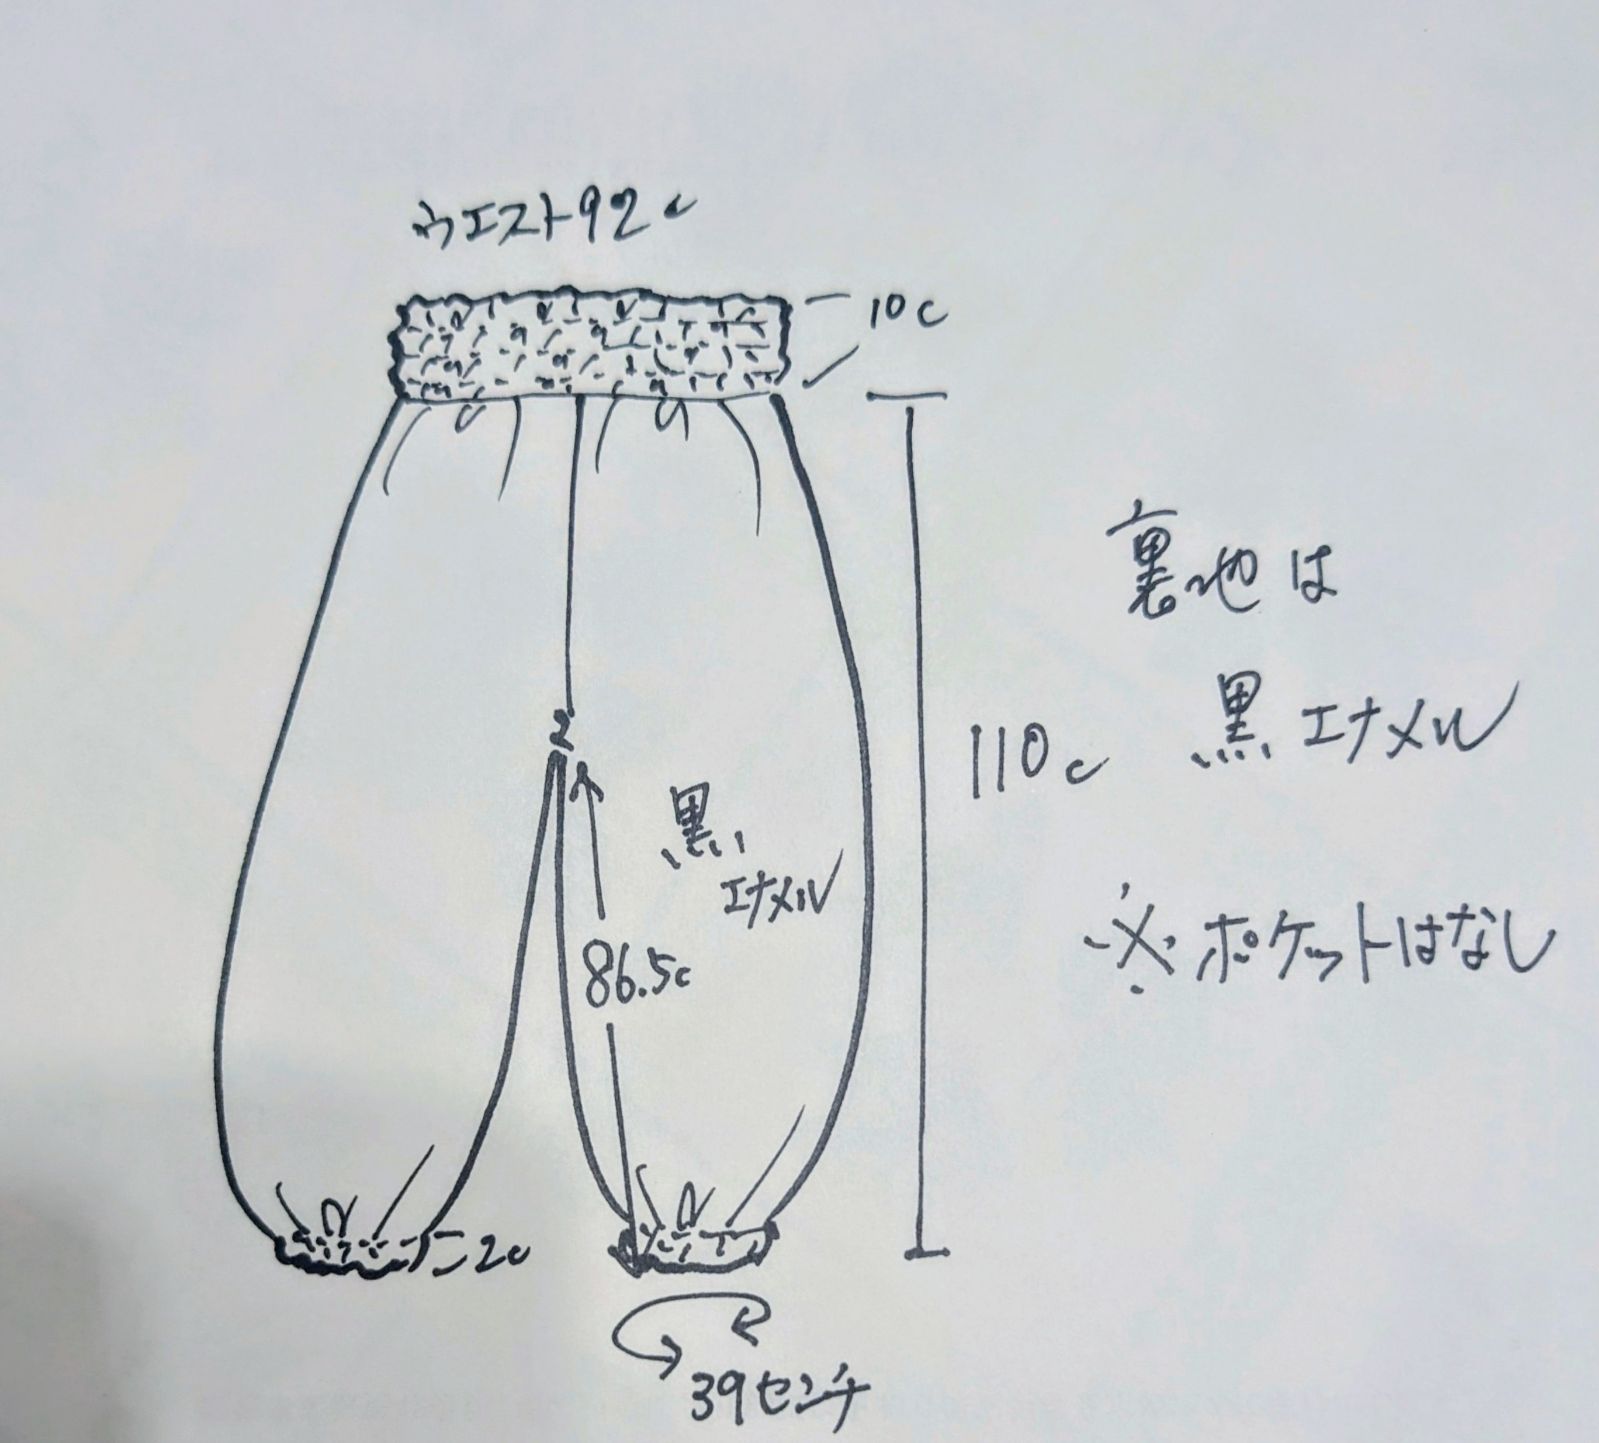 ウエスト92c
10c
裏地は
黒エナメル
110c
黒
エナメル
※ポケットはなし
86.5c
2c
39センチ